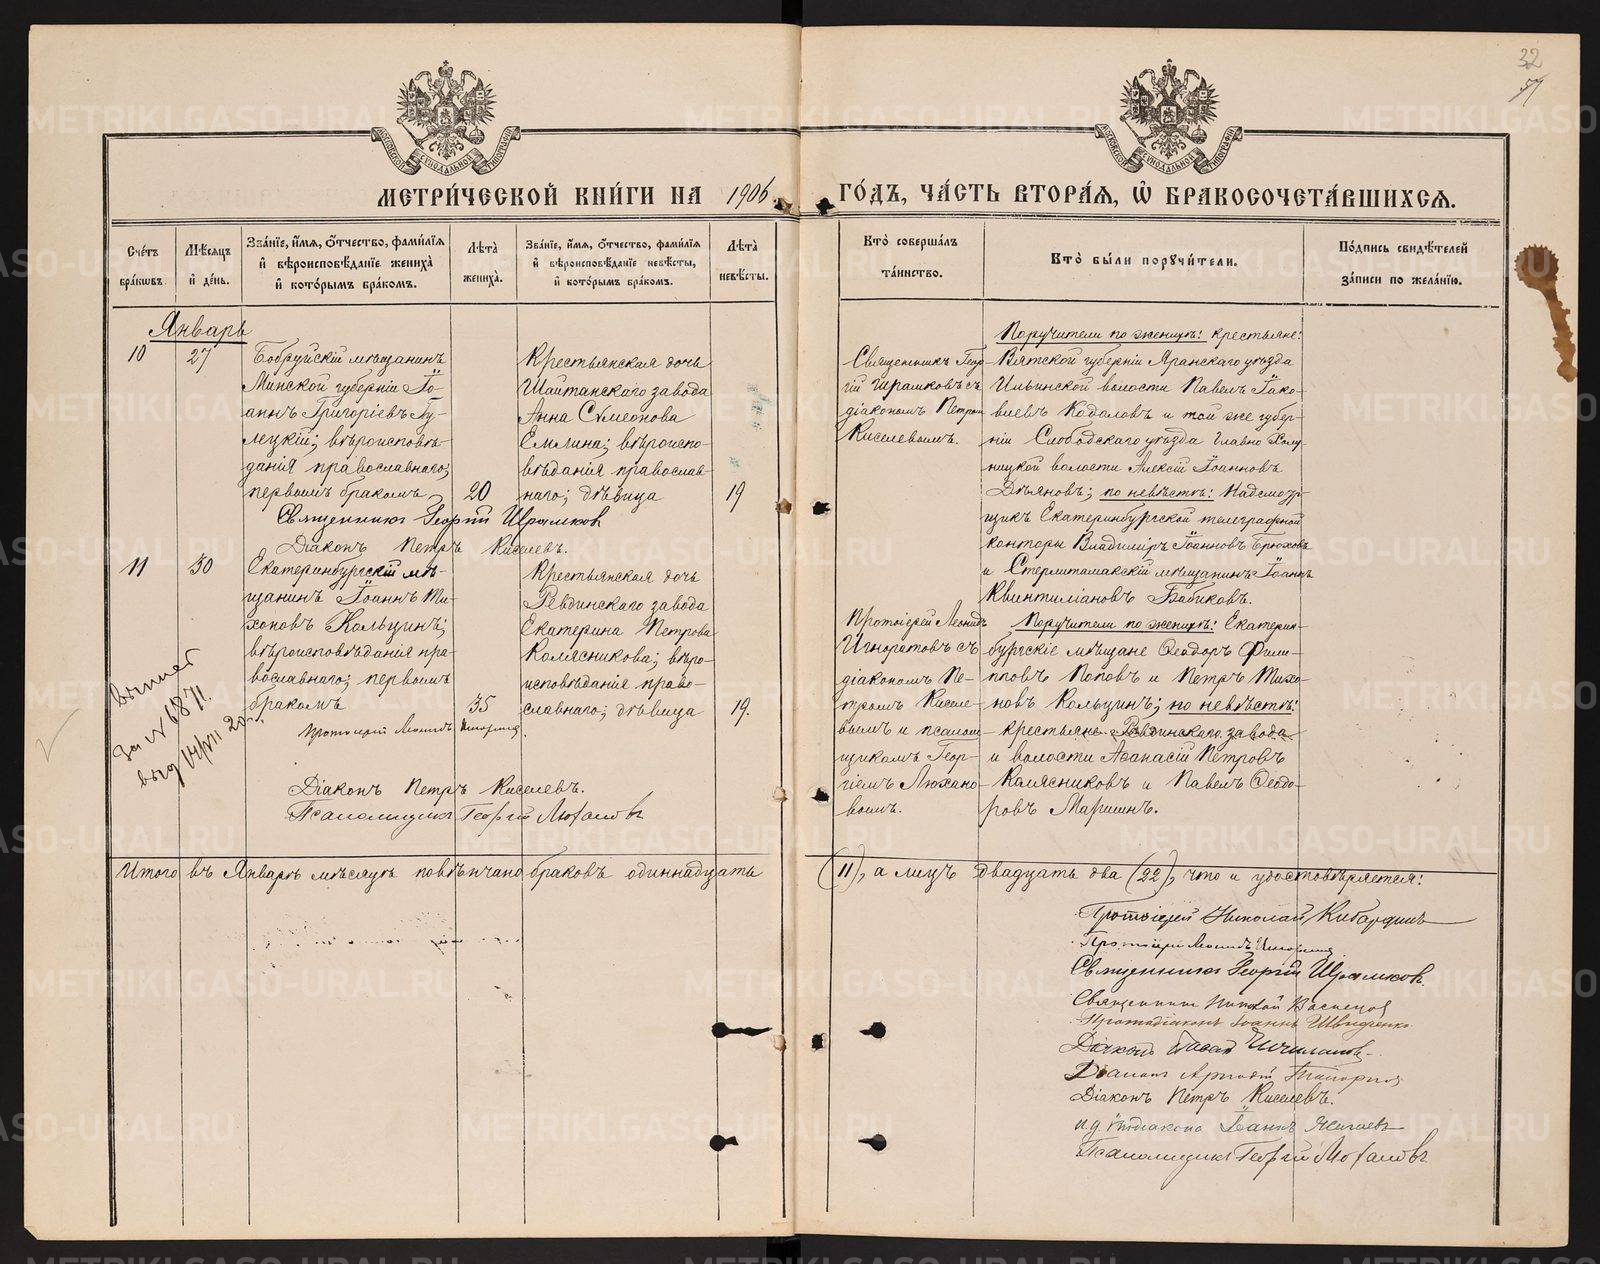 32
57
МЕТРИ́ЧЕСКОЙ КНИ́ГИ НА 1906 ГО́ДЪ, ЧА́СТЬ ВТОРА́Я, Ѡ БРАКОСОЧЕТА́ВШИХСЯ.
Сче́тъ бра́кѡвъ.
Мѣ́сяцъ и де́нь.
Зва́нїе, и́мя, ѻ́тчество, фами́лїя и вѣроисповѣ́данїе жениха̀ и кото́рымъ бра́комъ.
Лѣ́та жениха̀.
Зва́нїе, и́мя, ѻ́тчество, фами́лїя и вѣроисповѣ́данїе невѣ́сты, и кото́рымъ бра́комъ.
Лѣ́та невѣ́сты.
Кто̀ соверша́лъ та́инство.
Кто̀ бы́ли порꙋчи́тели.
По́дпись свидѣ́телей за́писи по жела́нїю.
Январь
10
27
Бобруйскій мѣщанинъ
Минской губерніи Іо-
аннъ Григоріевъ Гу-
лецкій; вѣроисповѣ-
данія православнаго;
первымъ бракомъ
20
Крестьянская дочь
Шайтанскаго завода
Анна Симеонова
Емлина; вѣроиспо-
вѣданія православ-
наго; дѣвица
19
Священникъ Геор-
гій Ширамковъ съ
діакономъ Петромъ
Киселевымъ.
Поручители по женихѣ: крестьяне:
Вятской губерніи Яранскаго уѣзда
Ильинской волости Павелъ Іако-
влевъ Кодаловъ и той же губер-
ніи Слободскаго уѣзда Главно Холу-
ницкой волости Алексій Іоанновъ
Дѣяновъ; по невѣстѣ: Надсмотр-
щикъ Екатеринбургской телеграфной
конторы Владиміръ Іоанновъ Брюховъ
и Стерлитамакскій мѣщанинъ Іоаннъ
Квинтиліановъ Бабиковъ.
Священникъ Георгій
Діаконъ Петръ Киселевъ.
11
30
Екатеринбургскій мѣ-
щанинъ Іоаннъ Ти-
хоновъ Кольцинъ;
вѣроисповѣданія пра-
вославнаго; первымъ
бракомъ
35
Крестьянская дочь
Ревдинскаго завода
Екатерина Петрова
Калясникова; вѣро-
исповѣданія право-
славнаго; дѣвица
19.
Протоіерей Леонидъ
Игноратовъ съ
діакономъ Пе-
тромъ Киселе-
вымъ и псалом-
щикомъ Геор-
гіемъ Люхано-
вымъ.
Поручители по женихѣ: Екатерин-
бургскіе мѣщане Ѳеодоръ Фили-
пповъ Поповъ и Петръ Тихо-
новъ Кольцинъ; по невѣстѣ:
крестьяне Ревдинскаго завода
и волости Аѳанасій Петровъ
Калясниковъ и Павелъ Ѳеодо-
ровъ Маришнъ.
за № 6871.
выд 14/VII
Протоіерей Леонидъ
Діаконъ Петръ Киселевъ.
Псаломщикъ Георгій Люхановъ
Итого въ Январѣ мѣсяцѣ повѣнчано браковъ одиннадцать (11), а лицъ двадцать два (22), что и удостовѣряется:
Протоіерей Николай Кибардинъ
Протоіерей Леонидъ
Священникъ Георгій
Священникъ Николай
Протодіаконъ Іоаннъ
Діаконъ
Діаконъ Аркадій
Діаконъ Петръ Киселевъ.
и.д. Іоаннъ
Псаломщикъ Георгій Люхановъ
METRIKI.GASO-URAL.RU